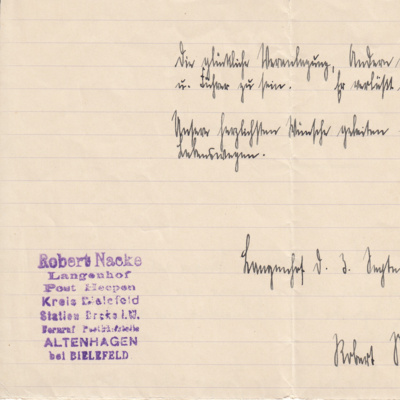 die glückliche Veranlagung, Andern
u. Führer zu sein. Er verläßt
Unsere herzlichsten Wünsche geleiten
Lebenswegen.
Langenhof d. 3. Septe
Robert N
Robert Nacke
Langenhof
Post Heepen
Kreis Bielefeld
Station Brake i.W.
Fernruf Posthilfstelle
ALTENHAGEN
bei BIELEFELD